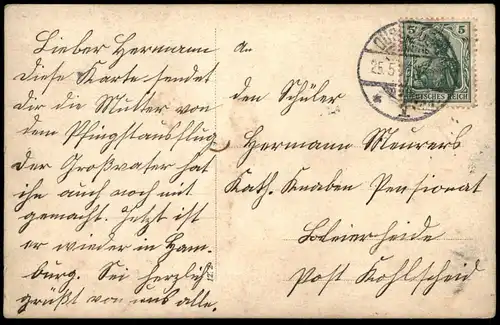 Lieber Hermann
diese Karte sendet
dir die Mutter von
dem Pfingstausflug
der Großvater hat
ihn auch noch mit
gemacht. Jetzt ist
er wieder in Ham-
burg. Sei herzlich
grüßt von uns alle.
An
den Schüler
Hermann Meurers
Kath. Knaben Pensionat
Bleierheide
Post Kohlscheid
5 5
DEUTSCHES REICH
25.5